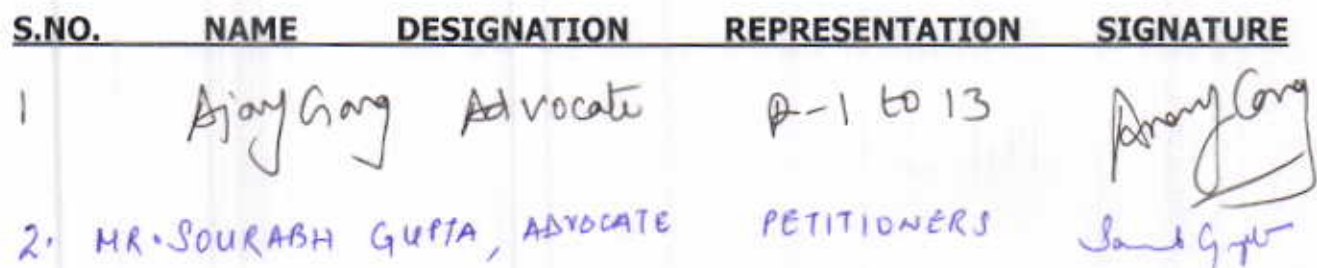 S.NO. NAME DESIGNATION REPRESENTATION SIGNATURE
1 Ajay Garg Advocate R-1 to 13
2. MR. SOURABH GUPTA, ADVOCATE PETITIONERS